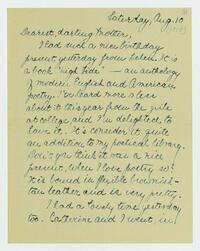 Saturday, Aug. 10
Dearest, darling Mother,
I had such a nice birthday
present yesterday from Helen. It is
a book "High Tide" — an anthology
of modern English and American
poetry. I've heard more about
about it this year from the girls
at college and I'm delighted to
have it. I consider it quite
an addition to my poetical library.
Don't you think it was a nice
present, when I love poetry so?
It is bound in flexible brownish-
tan leather and is very pretty.
I had a lovely time yesterday
too. Catherine and I went in